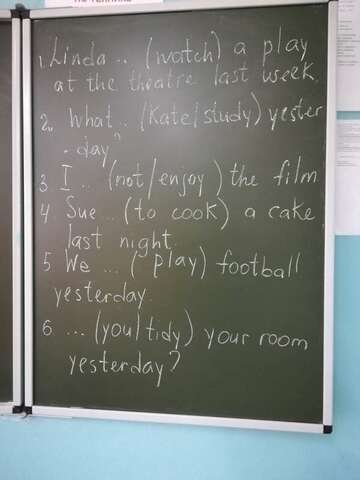 1. Linda .. (watch) a play
at the theatre last week.
2. What.. (Kate/study) yester
-day?
3 I .. (not/enjoy) the film
4. Sue ... (to cook) a cake
last night.
5 We ... (play) football
yesterday.
6 ... (you/tidy) your room
yesterday?